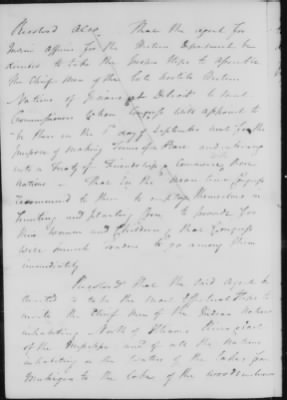 Resolved Also, That the agent for
Indian Affairs for the Western Department be
directed to take the proper steps to assemble
the Chief Men of the late hostile Western
Nations of Indians at Detroit to meet
Commissioners whom Congress will appoint to
be there on the 1st day of September next for the
purpose of making Terms of Peace and entering
into a Treaty of Friendship & Commerce these
nations — That in the mean time Congress
recommend to them to employ themselves in
hunting and planting Corn to provide for
their women and Children, & that Congress
will send traders to go among them
immediately
Resolved That the said Agent be
directed to take the most effectual steps to
invite the Chief Men of the Indian Nations
inhabiting North of Illinois River, East
of the Mississippi and of all the nations
inhabiting on the waters of the Lakes from
Michigan to the Lake of the Woods inclusive